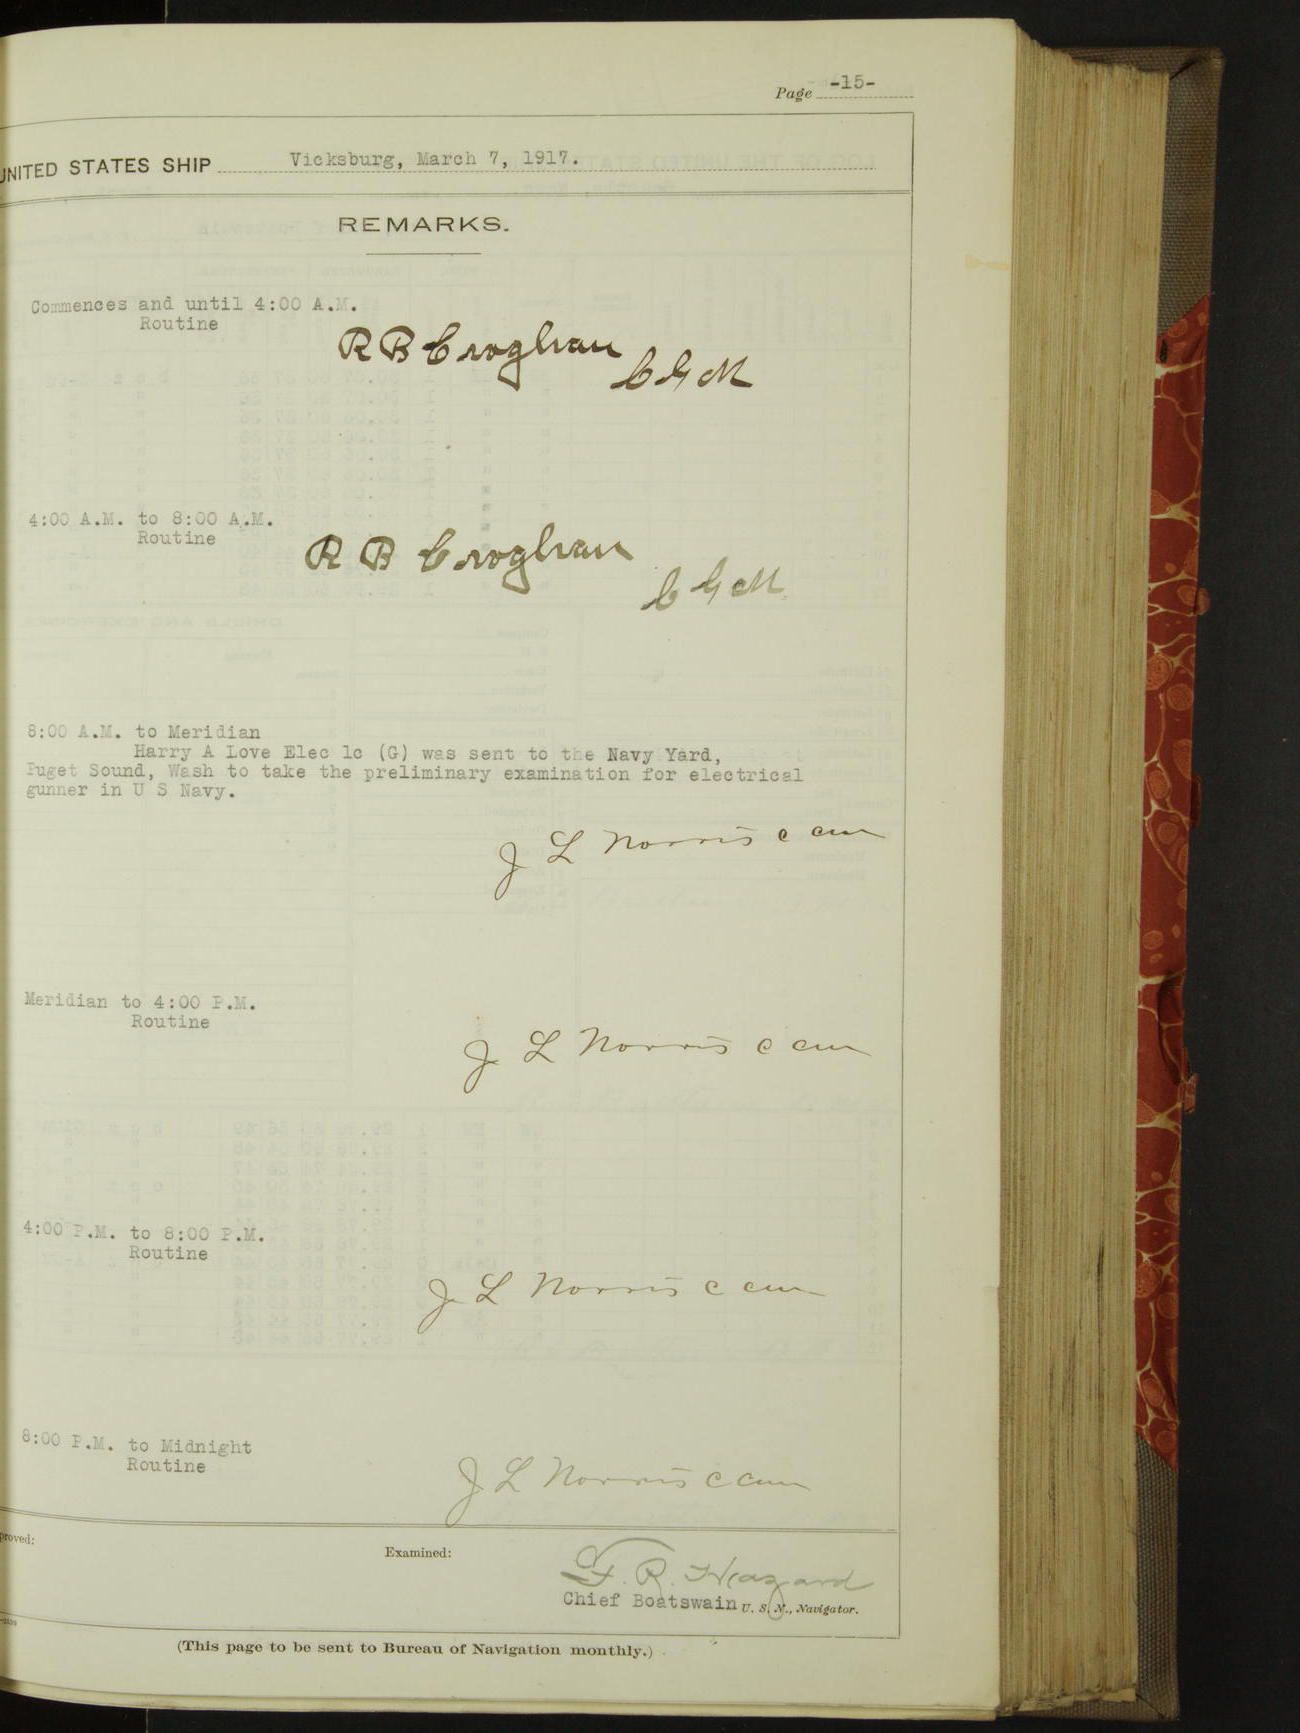 Page -15-
UNITED STATES SHIP Vicksburg, March 7, 1917.
REMARKS.
Commences and until 4:00 A.M.
Routine
R B Croghan
C G M
4:00 A.M. to 8:00 A.M.
Routine
R B Croghan
C G M.
8:00 A.M. to Meridian
Harry A Love Elec 1c (G) was sent to the Navy Yard,
Puget Sound, Wash to take the preliminary examination for electrical
gunner in U S Navy.
J L Norris c cm
Meridian to 4:00 P.M.
Routine
J L Norris c cm
4:00 P.M. to 8:00 P.M.
Routine
J L Norris c cm
8:00 P.M. to Midnight
Routine
J L Norris c cm
proved:
Examined:
F. R. Hazard
Chief Boatswain U. S. N., Navigator.
(This page to be sent to Bureau of Navigation monthly.)